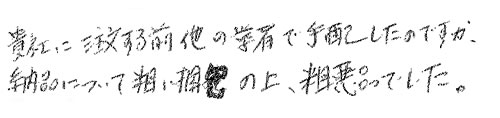 貴社に注文する前他の業者で手配したのですが、
納品について粗い梱の上、粗悪品でした。